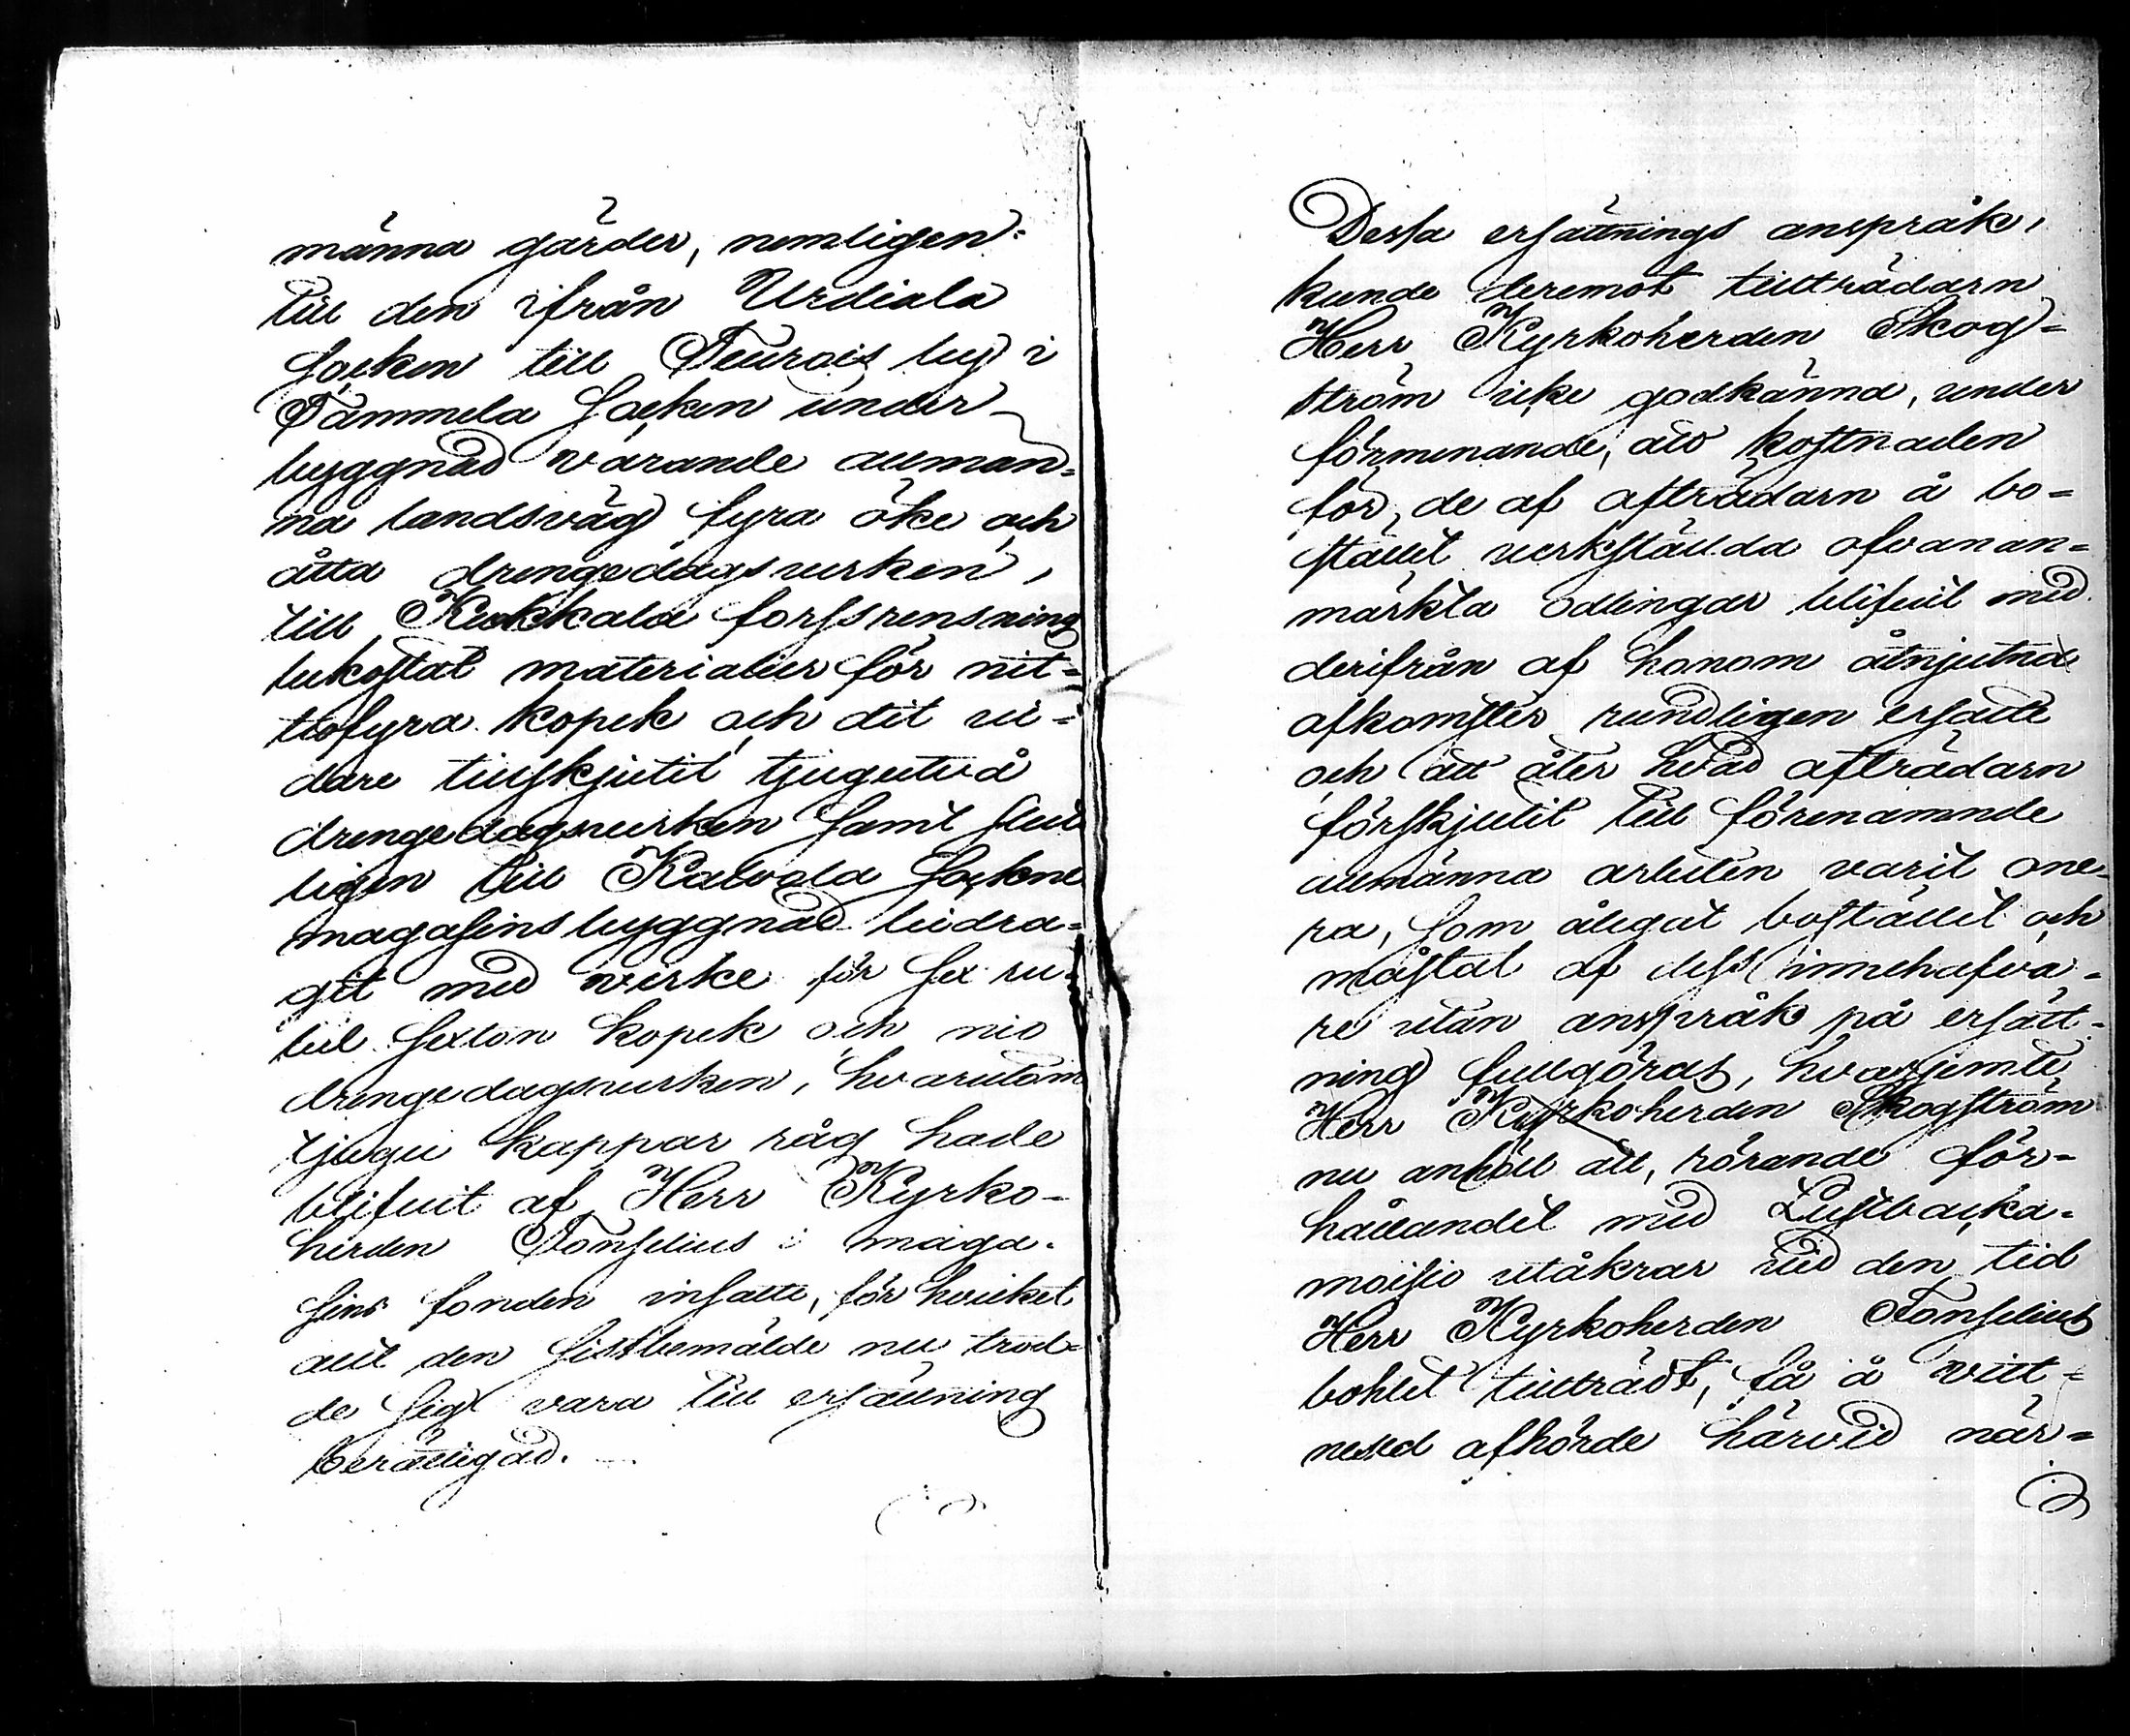 männa gärder, nemligen:
till den ifrån Urdiala
socken till Teurois by i
Tammela Socken under
byggnad varande allmän-
na landsväg fyra öke och
åtta drengedagsverken,
till Kuokkala forssrensning
bekostat materialier för nit-
tiofyra kopek och dit vi-
dare tillskjutit tjugutvå
drengedagsverken samt slut
ligen till Kalvola Sockne
magasins byggnad bidra-
git med virke för sex ru-
bel sexton kopek och nio
drengedagsverken, hvarutom
tjugu kappar råg hade
blifvit af Herr Kyrko-
herden Fonselius i maga-
sins fonden insatte, för hvilket
allt den sistbemälde nu trod-
de sig vara till ersättning
berättigad.
Dessa ersättnings anspråk,
kunde deremot tillträdarn
Herr Kyrkoherden Skog-
ström icke godkänna, under
förmenande, att kostnaden
för de af afträdarn å bo-
stället verkställda ofvanan-
märkta odlingar blifvit med
derifrån af honom åtnjutna
afkomster rundligen ersatte
och att åter hvad afträdarn
förskjutit till förenämnde
allmänna arbeten varit one-
ra, som ålegat bostället och
måstat af dess innehafva-
re utan anspråk på ersätt-
ning fullgöras, hvarjemte
Herr Kyrkoherden Skogström
nu anhöll att, rörande för-
hållandet med Lustbacka-
moisio utåkrar vid den tid
Herr Kyrkoherden Fonselius
bohlet tillträdt, få å vitt-
nesed afhörde härvid när-